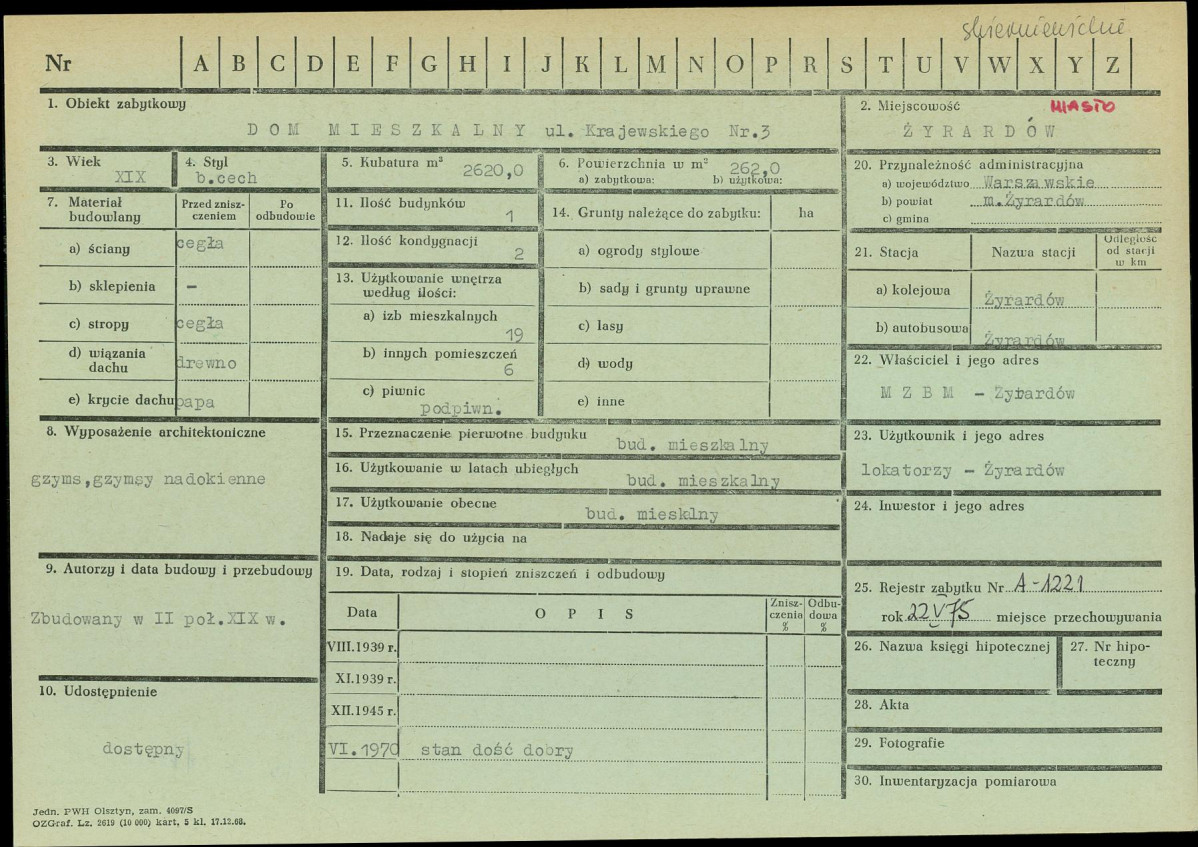 skierniewickie
Nr A B C D E F G H I J K L M N O P R S T U V W X Y Z
1. Obiekt zabytkowy
D O M M I E S Z K A L N Y ul. Krajewskiego Nr.3
2. Miejscowość MIASTO
Ż Y R A R D Ó W
3. Wiek
XIX
4. Styl
b.cech
5. Kubatura m³
2620,0
6. Powierzchnia w m² 262,0
a) zabytkowa: b) użytkowa:
7. Materiał budowlany
Przed zniszczeniem
Po odbudowie
a) ściany cegła
b) sklepienia –
c) stropy cegła
d) wiązania dachu drewno
e) krycie dachu papa
8. Wyposażenie architektoniczne
gzyms,gzymsy nadokienne
9. Autorzy i data budowy i przebudowy
Zbudowany w II poł.XIX w.
10. Udostępnienie
dostępny
11. Ilość budynków
1
12. Ilość kondygnacji
2
13. Użytkowanie wnętrza według ilości:
a) izb mieszkalnych
19
b) innych pomieszczeń
6
c) piwnic
podpiwn.
14. Grunty należące do zabytku: ha
a) ogrody stylowe
b) sady i grunty uprawne
c) lasy
d) wody
e) inne
15. Przeznaczenie pierwotne budynku
bud. mieszkalny
16. Użytkowanie w latach ubiegłych
bud. mieszkalny
17. Użytkowanie obecne
bud. miesklny
18. Nadaje się do użycia na
19. Data, rodzaj i stopień zniszczeń i odbudowy
Data O P I S Zniszczenia % Odbudowa %
VIII.1939 r.
XI.1939 r.
XII.1945 r.
VI.1970 stan dość dobry
20. Przynależność administracyjna
a) województwo Warszawskie
b) powiat m.Żyrardów
c) gmina
21. Stacja Nazwa stacji Odległość od stacji w km
a) kolejowa Żyrardów
b) autobusowa Żyrardów
22. Właściciel i jego adres
M Z B M – Żyrardów
23. Użytkownik i jego adres
lokatorzy – Żyrardów
24. Inwestor i jego adres
25. Rejestr zabytku Nr A-1221
rok 22 V 75 miejsce przechowywania
26. Nazwa księgi hipotecznej
27. Nr hipoteczny
28. Akta
29. Fotografie
30. Inwentaryzacja pomiarowa
Jedn. PWH Olsztyn, zam. 4097/S
OZGraf. Lz. 2619 (10 000) kart, 5 kl. 17.12.68.